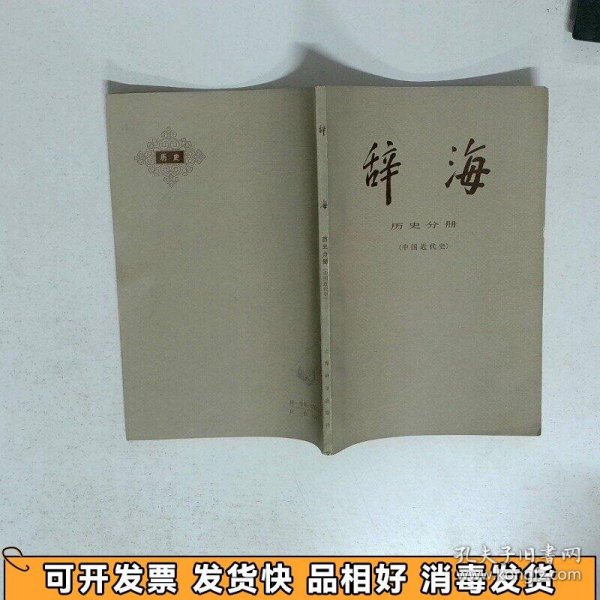 历史
辞海
历史分册
(中国近代史)
辞海
历史分册(中国近代史)
孔夫子旧书网
www.kongfz.com
可开发票 发货快 品相好 消毒发货